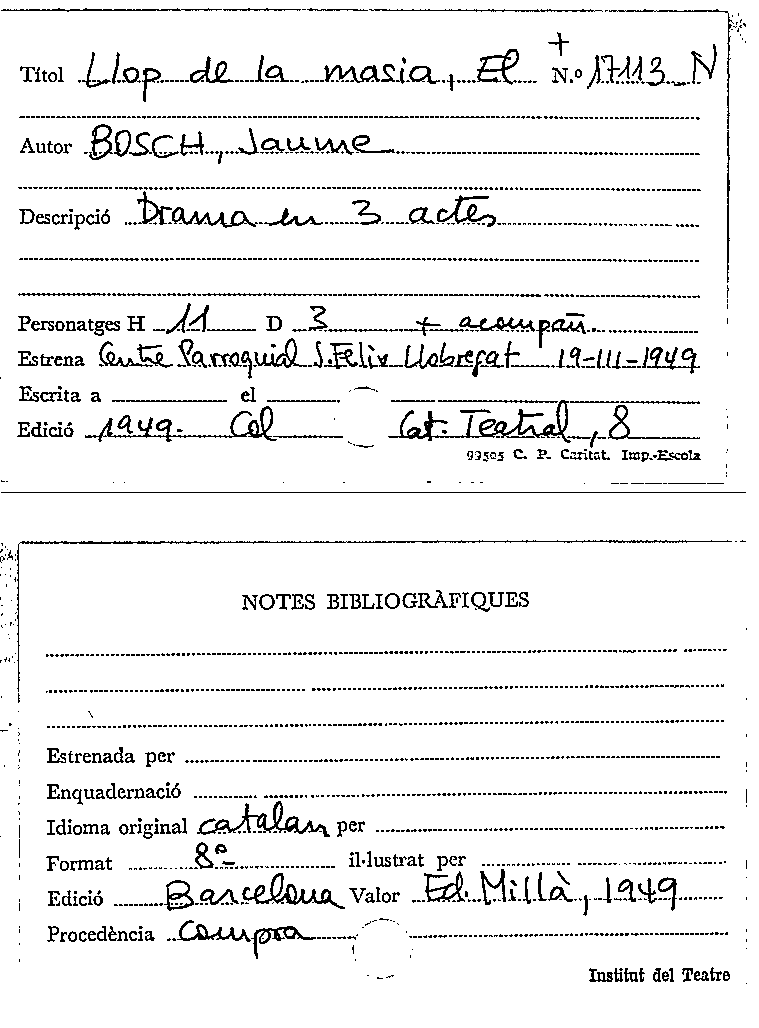 +
Títol Llop de la masia, El N.º 17113 N
Autor BOSCH, Jaume
Descripció Drama en 3 actes
Personatges H 11 D 3 + acompañ.
Estrena Centre Parroquial S. Feliu Llobregat 19-III-1949
Escrita a el
Edició 1949. Col Cat. Teatral, 8
99505 C. P. Caritat. Imp.-Escola
NOTES BIBLIOGRÀFIQUES
Estrenada per
Enquadernació
Idioma original catalan per
Format 8º il·lustrat per
Edició Barcelona Valor Ed. Millà, 1949
Procedència Compra
Institut del Teatre